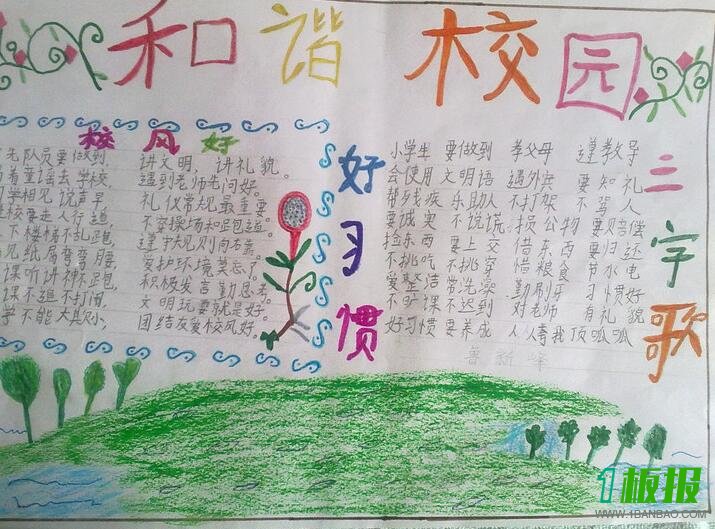 和谐 校园
校风好
队员要做到,
着童谣去学校,
学相见说声早,
校要走人行道,
下楼梯不乱跑,
见纸屑弯弯腰,
课听讲神不跑,
课不追不打闹,
学不能大具小,
讲文明,讲礼貌。
遇到老师先问好。
礼仪常规最重要
不穿操场和跑道。
遵守规则向右靠
爱护环境莫忘了
积极发言勤思考
文明玩耍就是好。
团结友爱校风好。
好习惯
小学生 要做到 孝父母 遵教导
会使用 文明语 遇外宾 要知礼
帮残疾 乐助人 不打架 不骂人
要诚实 不说谎 损公物 要赔偿
捡东西 要上交 借东西 要归还
不挑吃 不挑穿 惜粮食 节水电
爱整洁 常洗澡 勤刷牙 习惯好
不旷课 不迟到 对老师 有礼貌
好习惯 要养成 人人夸我 顶呱呱
三字歌
1板报
WWW.1BANBAO.COM